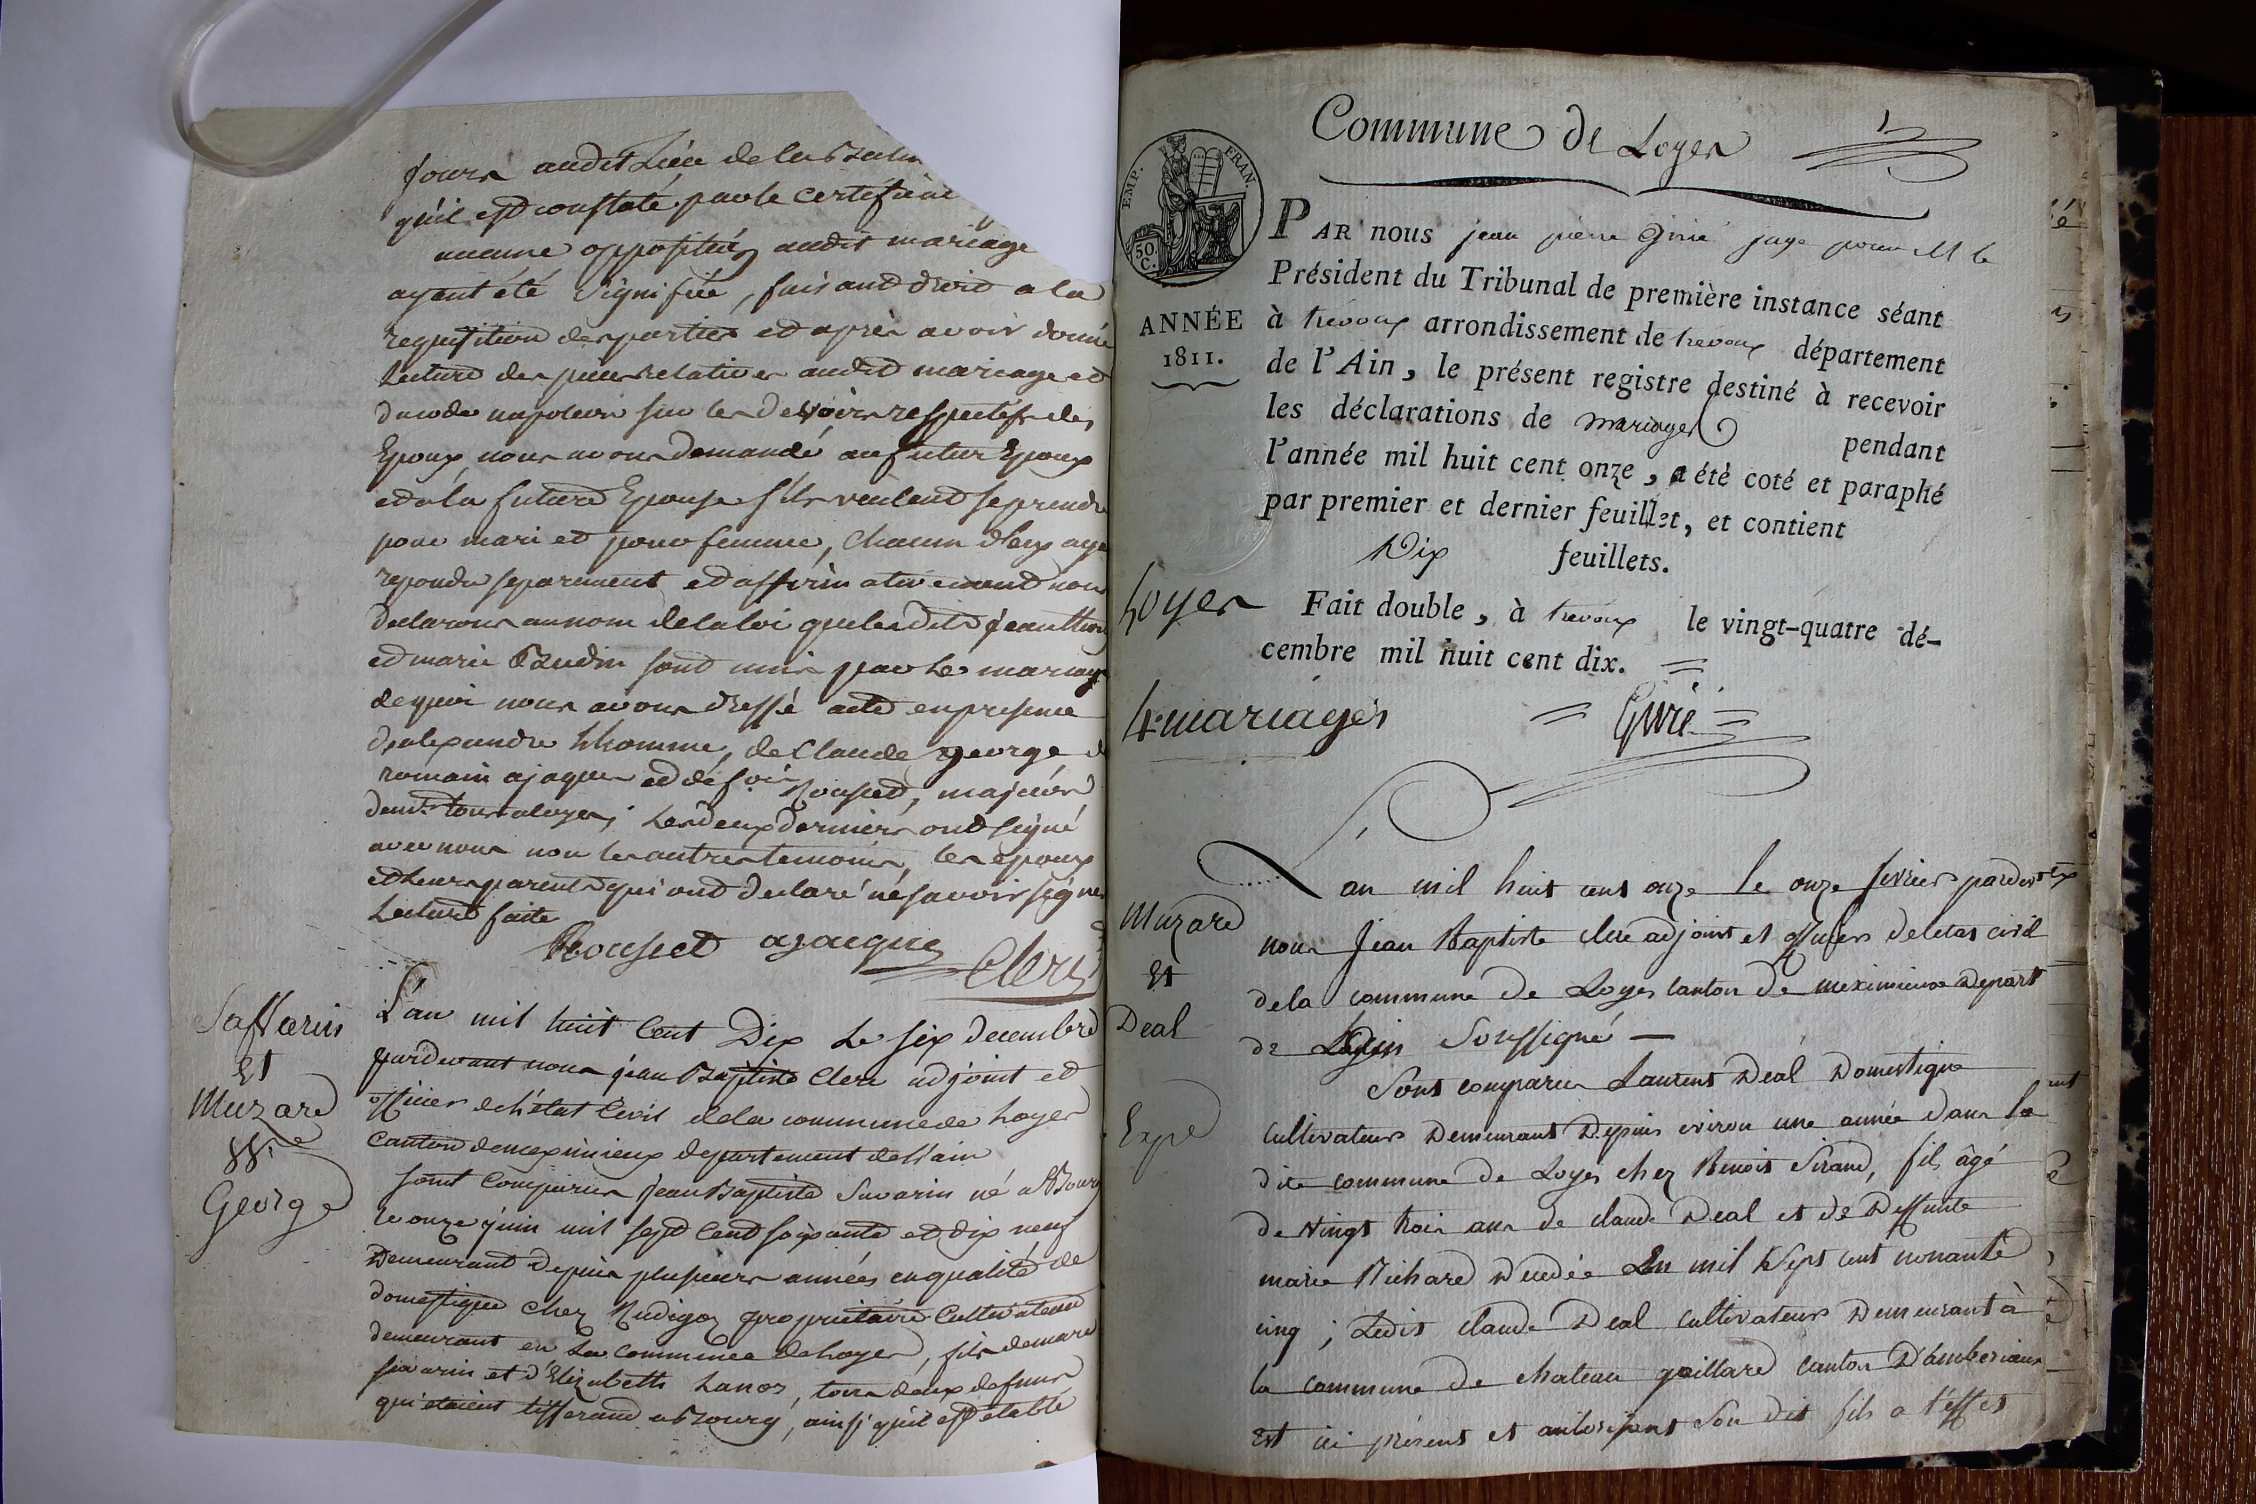 jours audit Lieu de la
qu'il est constaté par le certificat
aucune opposition audit mariage
ayant été signifiée, faisant droit a la
requisition des parties et après avoir donné
Lecture des pieces relatives audit mariage et
du code napoleon sur les devoirs respectifs des
Epoux nous avons demandé au futur Epoux
et a la future Epouse s'ils veulent se prendre
pour mari et pour femme, chacun d'eux aya
repondu separement et affirmativement nous
declarons au nom de la loi que lesdits jean
et marie Baudin sont unis par le mariage
de quoi nous avons dressé acte en presence
d'alexandre Lhomme, de Claude george
romain ajaques et de Rousset, majeurs
demt. tous a loyes; les deux derniers ont signé
avec nous non les autres temoins, les epoux
et leurs parents qui ont declaré ne savoir signer
Lecture faite
Rousset ajacque
Clerc
Saffarin
Et
Muzard
&&.
George
L'an mil huit Cent Dix Le six decembre
pardevant nous jean Baptiste Clerc adjoint et
officier de l'état Civil de la commune de Loyes
Canton de meximieux departement de l'ain
sont Comparus jean Baptiste Savarin né a Bourg
le onze juin mil sept Cent soixante et dix neuf
Demeurant depuis plusieurs années en qualité de
domestique chez Rudigoz proprietaire Cultivateur
demeurant en La commune de Loyes, fils de marc
savarin et d'Elizabeth Lanos, tous deux defunts
qui etaient tisserand a Bourg, ainsi qu'il est etabli
Commune de Loyes
1
EMP. FRAN.
50
C.
PAR nous jean pierre Girié juge pour M le
Président du Tribunal de première instance séant
ANNÉE
1811.
à trévoux arrondissement de trevoux département
de l'Ain, le présent registre destiné à recevoir
les déclarations de mariages pendant
l'année mil huit cent onze, a été coté et paraphé
par premier et dernier feuillet, et contient
Dix feuillets.
Loyes
Fait double, à trevoux le vingt-quatre dé-
cembre mil huit cent dix.
4 mariages
Girié
L'an mil huit cent onze le onze fevrier pardevt
Muzard
Et
Deal
Expé
nous Jean Baptiste clerc adjoint et officier de letat civil
de la commune de Loyes canton de meximieux Depart
de Lain Soussigné
Sont comparus Laurent Deal Domestique
cultivateur Demeurant Depuis eviron une année dans la
dite commune de Loyes chez Benoit Sirand, fils âgé
de vingt trois ans de claude Deal et de Deffunte
marie Richard Décédée En mil Sept cent nonante
cinq; Ledit claude Deal cultivateur Demeurant à
la commune de chateau gaillard canton D'amberieux
Est ici présent et autorisant Son dit fils a l'effet